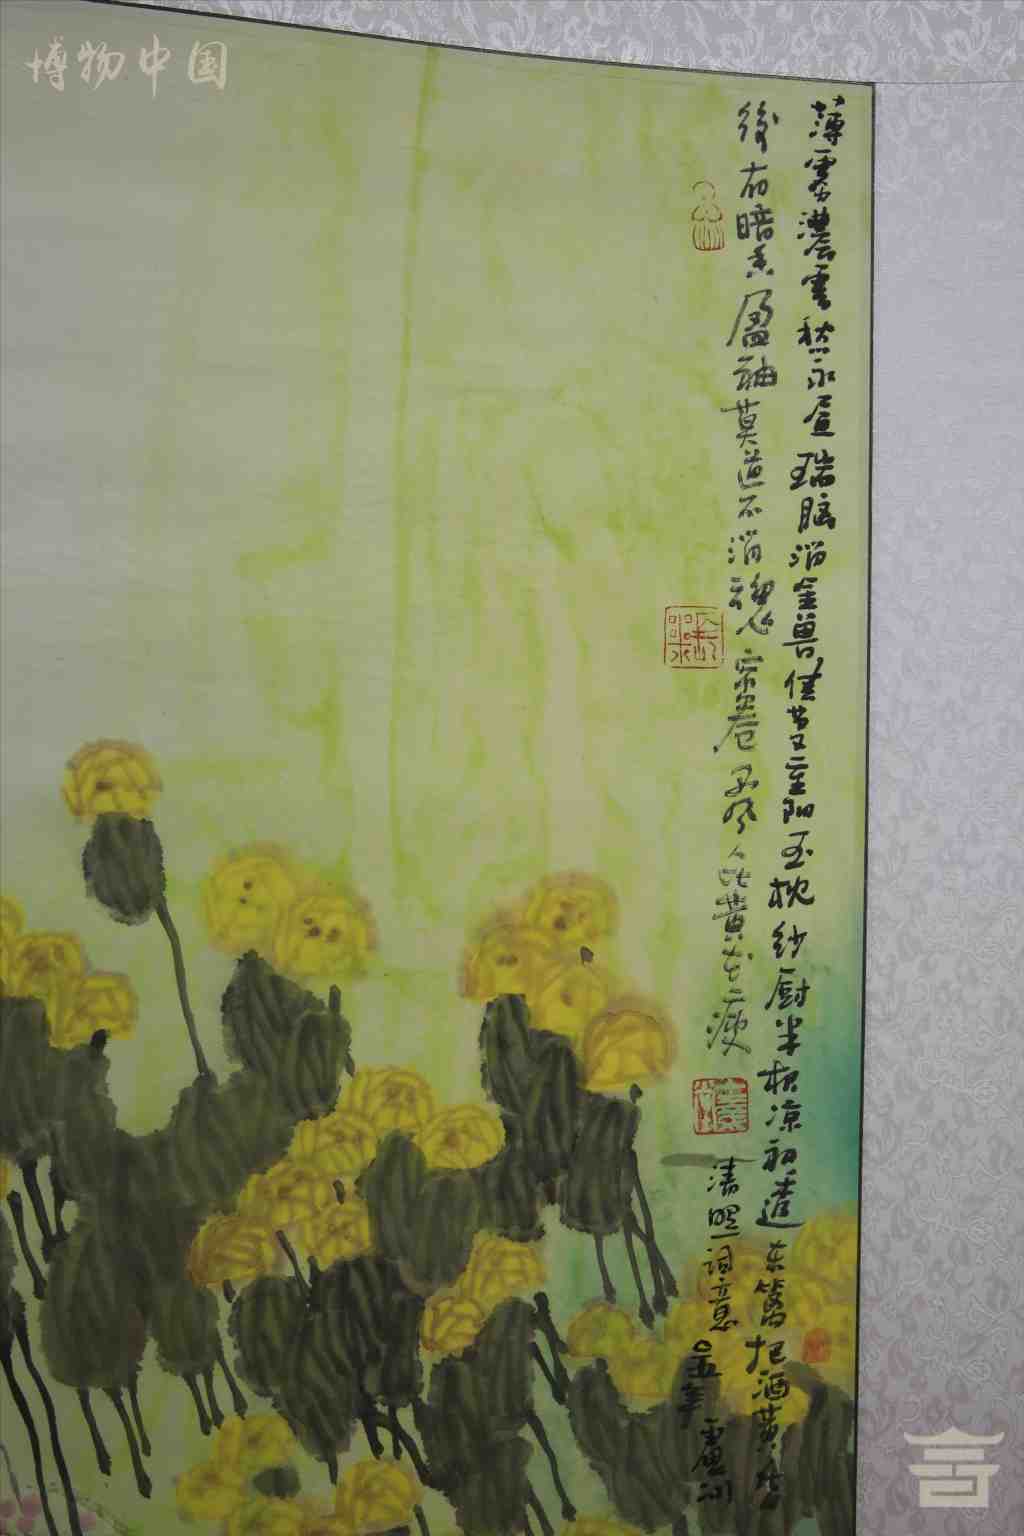 博物中国
薄雾濃雲愁永昼瑞脑消金兽佳节又重阳玉枕纱厨半夜凉初透东篱把酒黄昏
後有暗香盈袖莫道不消魂帘卷西风人比黄花瘦
清照词意〇五年